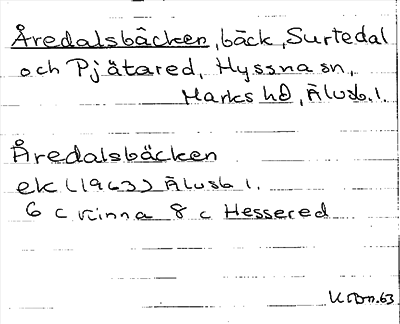 Åredalsbäcken, bäck, Surtedal
och Pjätared, Hyssna sn,
Marks hd, Älvsb. l.
Åredalsbäcken
ek (1963) Älvsb l.
6 c Kinna 8 c Hessered